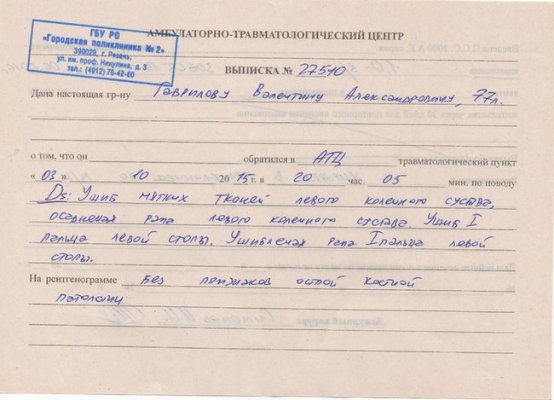 ГБУ РО
«Городская поликлиника № 2»
390029, г. Рязань,
ул. им. проф. Никулина, д. 3
тел.: (4912) 76-42-60
АМБУЛАТОРНО-ТРАВМАТОЛОГИЧЕСКИЙ ЦЕНТР
ВЫПИСКА № 27510
Дана настоящая гр-ну Гаврилову Валентину Александровичу, 77л.
о том, что он обратился в АТЦ травматологический пункт
« 03 » 10 2015г. в 20 час. 05 мин. по поводу
Ds: Ушиб мягких тканей левого коленного сустава,
осаднения рана левого коленного сустава. Ушиб I
пальца левой стопы. Ушибленая рана I пальца левой
стопы.
На рентгенограмме Без признаков острой костной
патологии